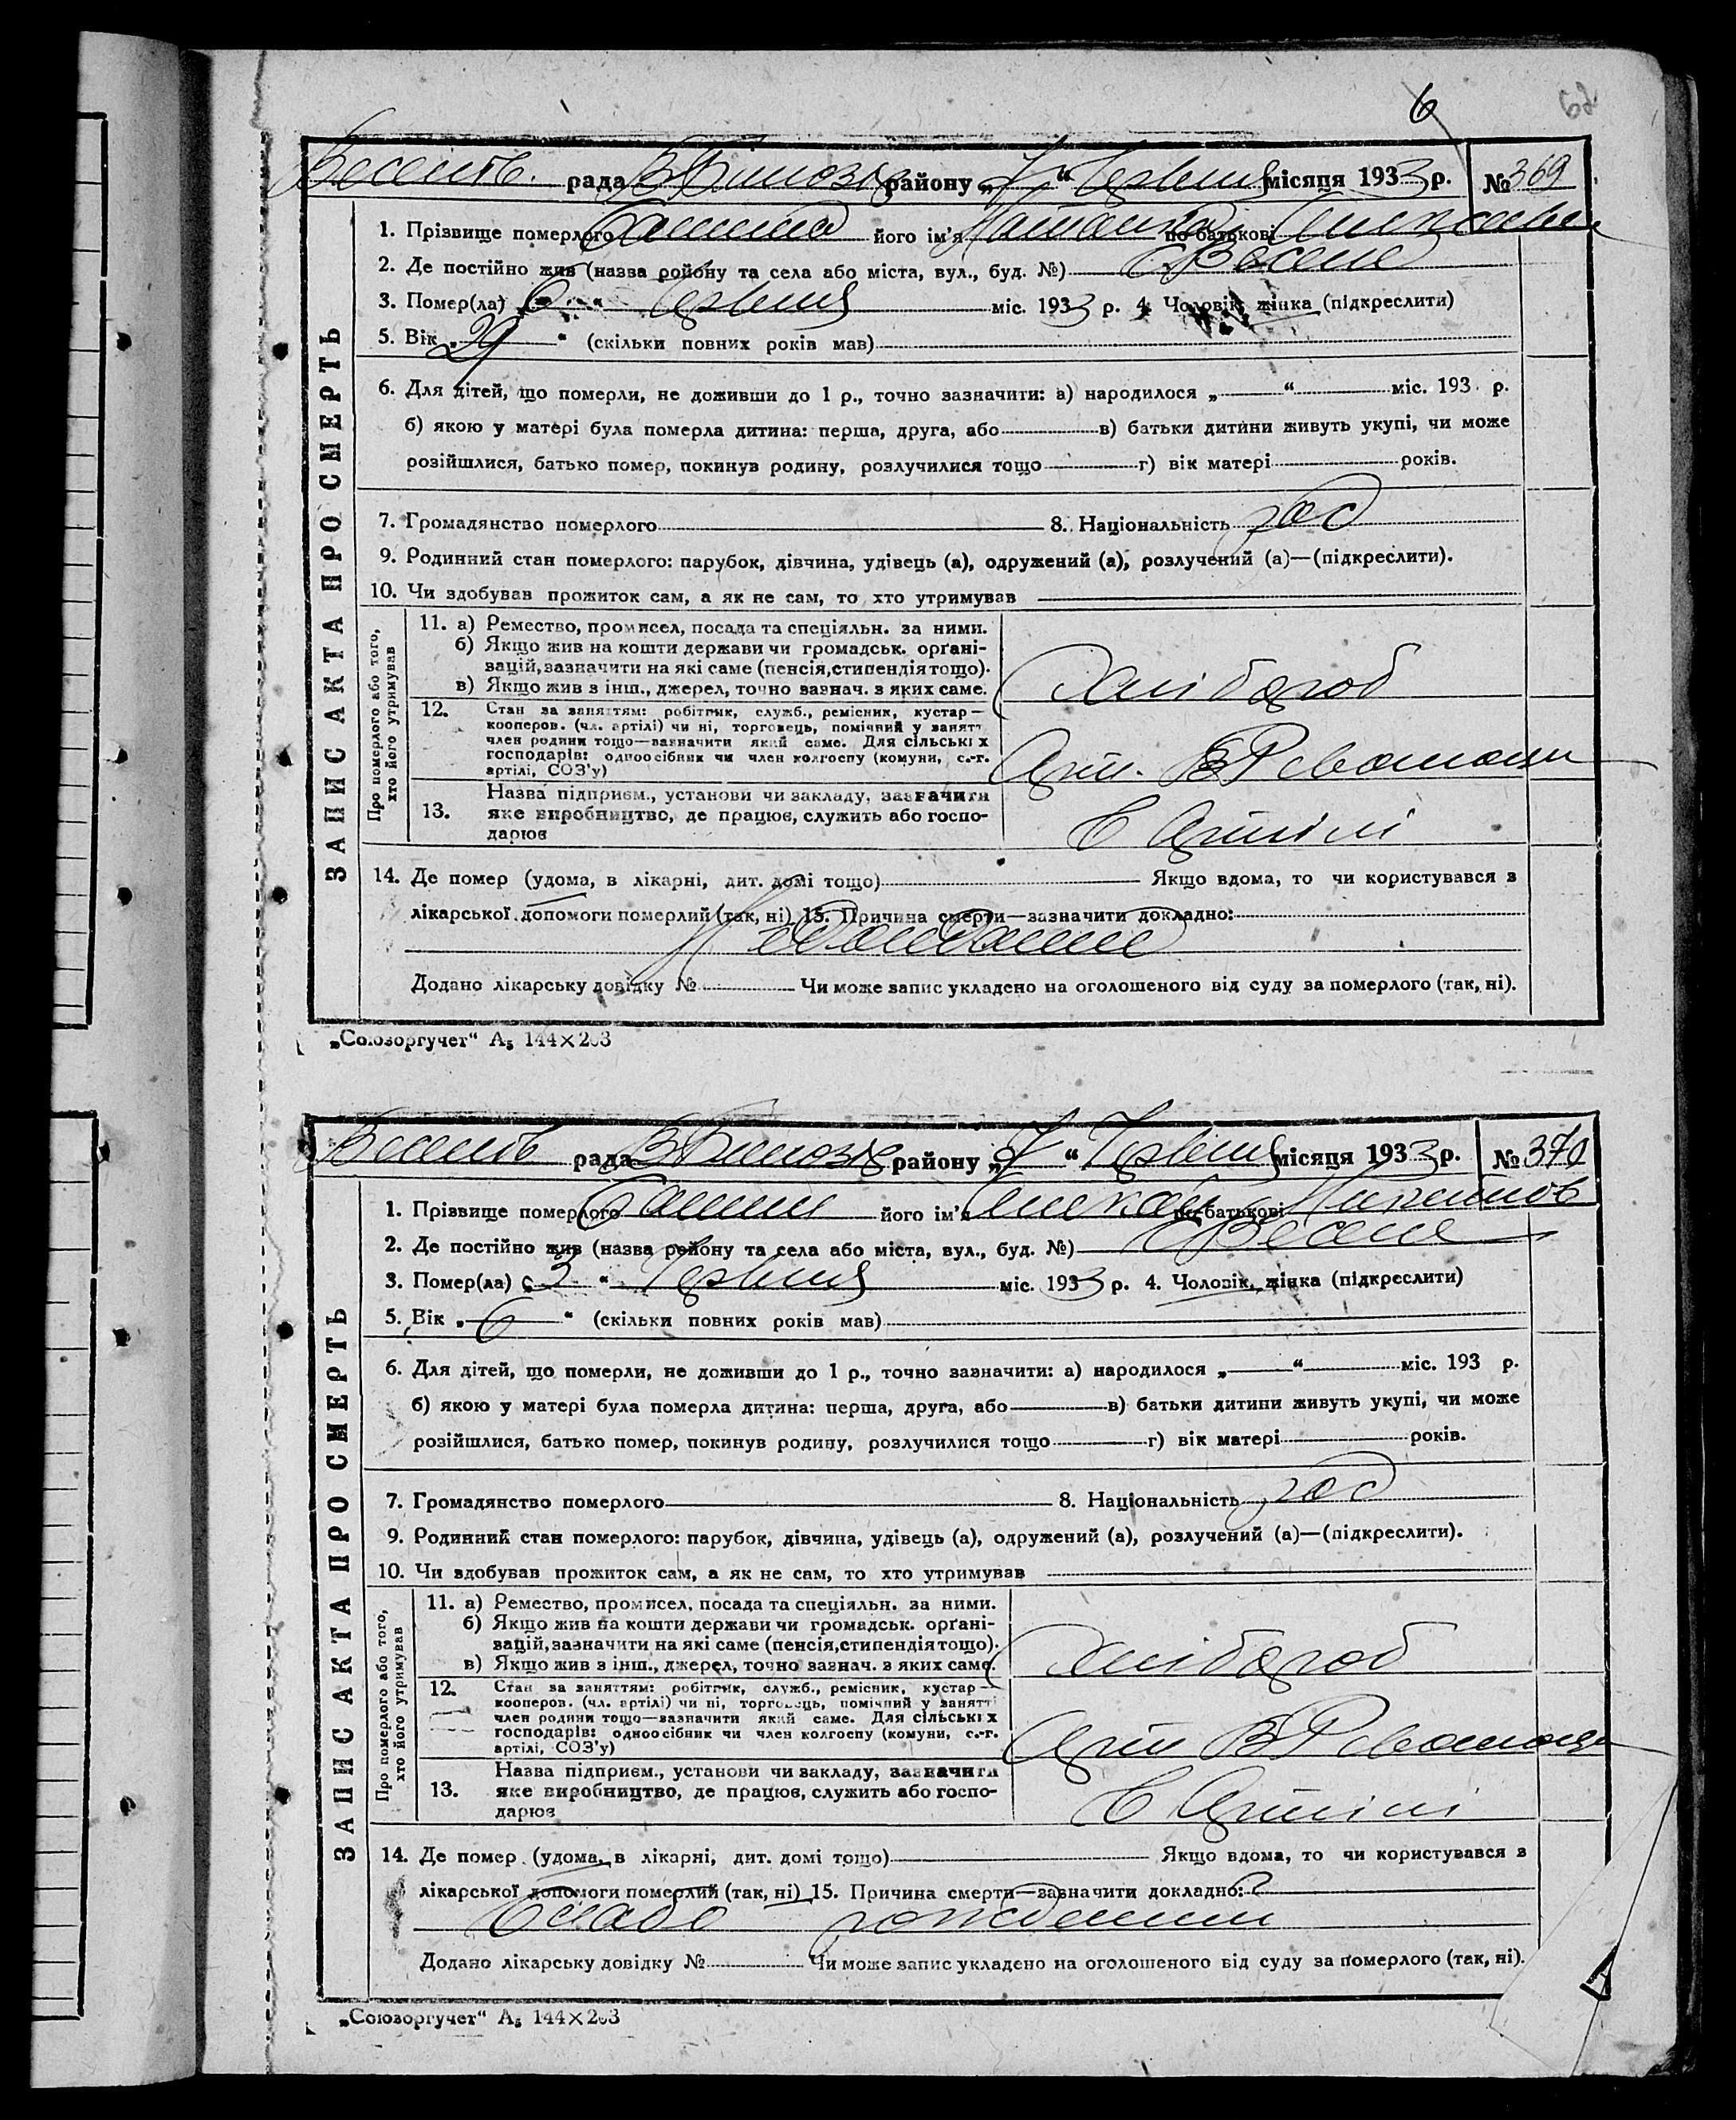 6
62
Веселів. рада В Білозір району „7“ Червня місяця 1933 р. № 369
1. Прізвище померлого його ім'я по батькові
2. Де постійно жив (назва ройону та села або міста, вул., буд. №) с Веселе
3. Помер(ла) „6“ Червня міс. 1933 р. 4. Чоловік, жінка (підкреслити)
5. Вік „29“ (скільки повних років мав)
6. Для дітей, що померли, не доживши до 1 р., точно зазначити: а) народилося „ “ міс. 193 р.
б) якою у матері була померла дитина: перша, друга, або в) батьки дитини живуть укупі, чи може
розійшлися, батько помер, покинув родину, розлучилися тощо г) вік матері років.
7. Громадянство померлого 8. Національність
9. Родинний стан померлого: парубок, дівчина, удівець (а), одружений (а), розлучений (а)—(підкреслити).
10. Чи здобував прожиток сам, а як не сам, то хто утримував
ЗАПИС АКТА ПРО СМЕРТЬ
Про померлого або того,
хто його утримував
11. а) Ремество, промисел, посада та спеціяльн. за ними.
б) Якщо жив на кошти держави чи громадськ. орґані-
зацій, зазначити на які саме (пенсія, стипендія тощо).
в) Якщо жив з інш., джерел, точно зазнач. з яких саме.
Хлібороб
12. Стан за заняттям: робітник, служб., ремісник, кустар—
кооперов. (чл. артілі) чи ні, торговець, помічний у занятті
член родини тощо—зазначити який саме. Для сільських
господарів: одноосібник чи член колгоспу (комуни, с.-г.
артілі, СОЗ'у)
Арт.
13. Назва підприєм., установи чи закладу, зазначити
яке виробництво, де працює, служить або госпо-
дарює
в Артілі
14. Де помер (удома, в лікарні, дит. домі тощо) Якщо вдома, то чи користувався з
лікарської допомоги померлий (так, ні) 15. Причина смерти—зазначити докладно:
Додано лікарську довідку № Чи може запис укладено на оголошеного від суду за померлого (так, ні).
„Союзоргучет“ А₅ 144×203
Веселів рада В Білозір району „7“ Червня місяця 1933 р. № 370
1. Прізвище померлого його ім'я по батькові
2. Де постійно жив (назва ройону та села або міста, вул., буд. №) с Веселе
3. Помер(ла) „3“ Червня міс. 1933 р. 4. Чоловік, жінка (підкреслити)
5. Вік „6“ (скільки повних років мав)
6. Для дітей, що померли, не доживши до 1 р., точно зазначити: а) народилося „ “ міс. 193 р.
б) якою у матері була померла дитина: перша, друга, або в) батьки дитини живуть укупі, чи може
розійшлися, батько помер, покинув родину, розлучилися тощо г) вік матері років.
7. Громадянство померлого 8. Національність
9. Родинний стан померлого: парубок, дівчина, удівець (а), одружений (а), розлучений (а)—(підкреслити).
10. Чи здобував прожиток сам, а як не сам, то хто утримував
ЗАПИС АКТА ПРО СМЕРТЬ
Про померлого або того,
хто його утримував
11. а) Ремество, промисел, посада та спеціяльн. за ними.
б) Якщо жив на кошти держави чи громадськ. орґані-
зацій, зазначити на які саме (пенсія, стипендія тощо).
в) Якщо жив з інш., джерел, точно зазнач. з яких саме.
Хлібороб
12. Стан за заняттям: робітник, служб., ремісник, кустар—
кооперов. (чл. артілі) чи ні, торговець, помічний у занятті
член родини тощо—зазначити який саме. Для сільських
господарів: одноосібник чи член колгоспу (комуни, с.-г.
артілі, СОЗ'у)
Арт
13. Назва підприєм., установи чи закладу, зазначити
яке виробництво, де працює, служить або госпо-
дарює
в Артілі
14. Де помер (удома, в лікарні, дит. домі тощо) Якщо вдома, то чи користувався з
лікарської допомоги померлий (так, ні) 15. Причина смерти—зазначити докладно:
Слабо рождений
Додано лікарську довідку № Чи може запис укладено на оголошеного від суду за померлого (так, ні).
„Союзоргучет“ А₅ 144×203